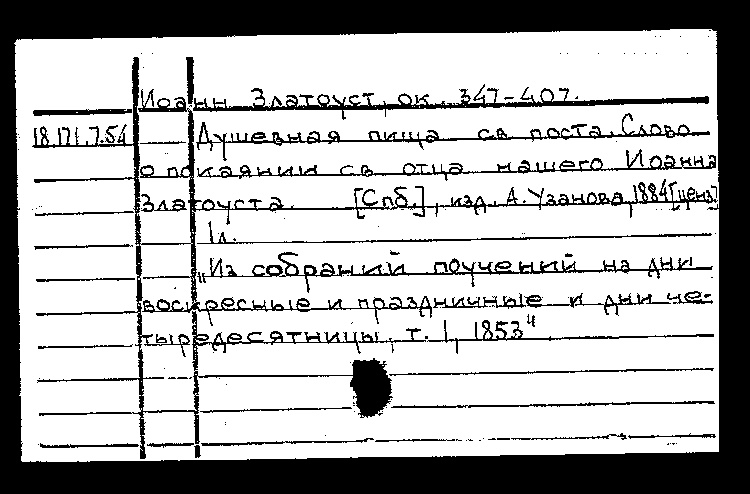 Иоанн Златоуст, ок. 347-407.
18.171.7.54 Душевная пища св поста. Слово
о покаянии св отца нашего Иоанна
Златоуста. [Спб.], изд. А. Узанова, 1884 [ценз]
1л.
„Из собраний поучений на дни
воскресные и праздничные и дни че-
тыредесятницы, т. 1, 1853"